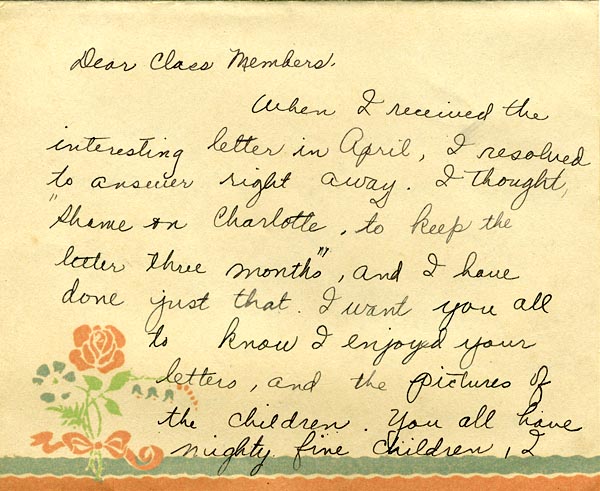 Dear Class Members.
When I received the
interesting letter in April, I resolved
to answer right away. I thought,
"Shame on Charlotte, to keep the
letter three months", and I have
done just that. I want you all
to know I enjoyed your
letters, and the pictures of
the children. You all have
mighty fine children, I